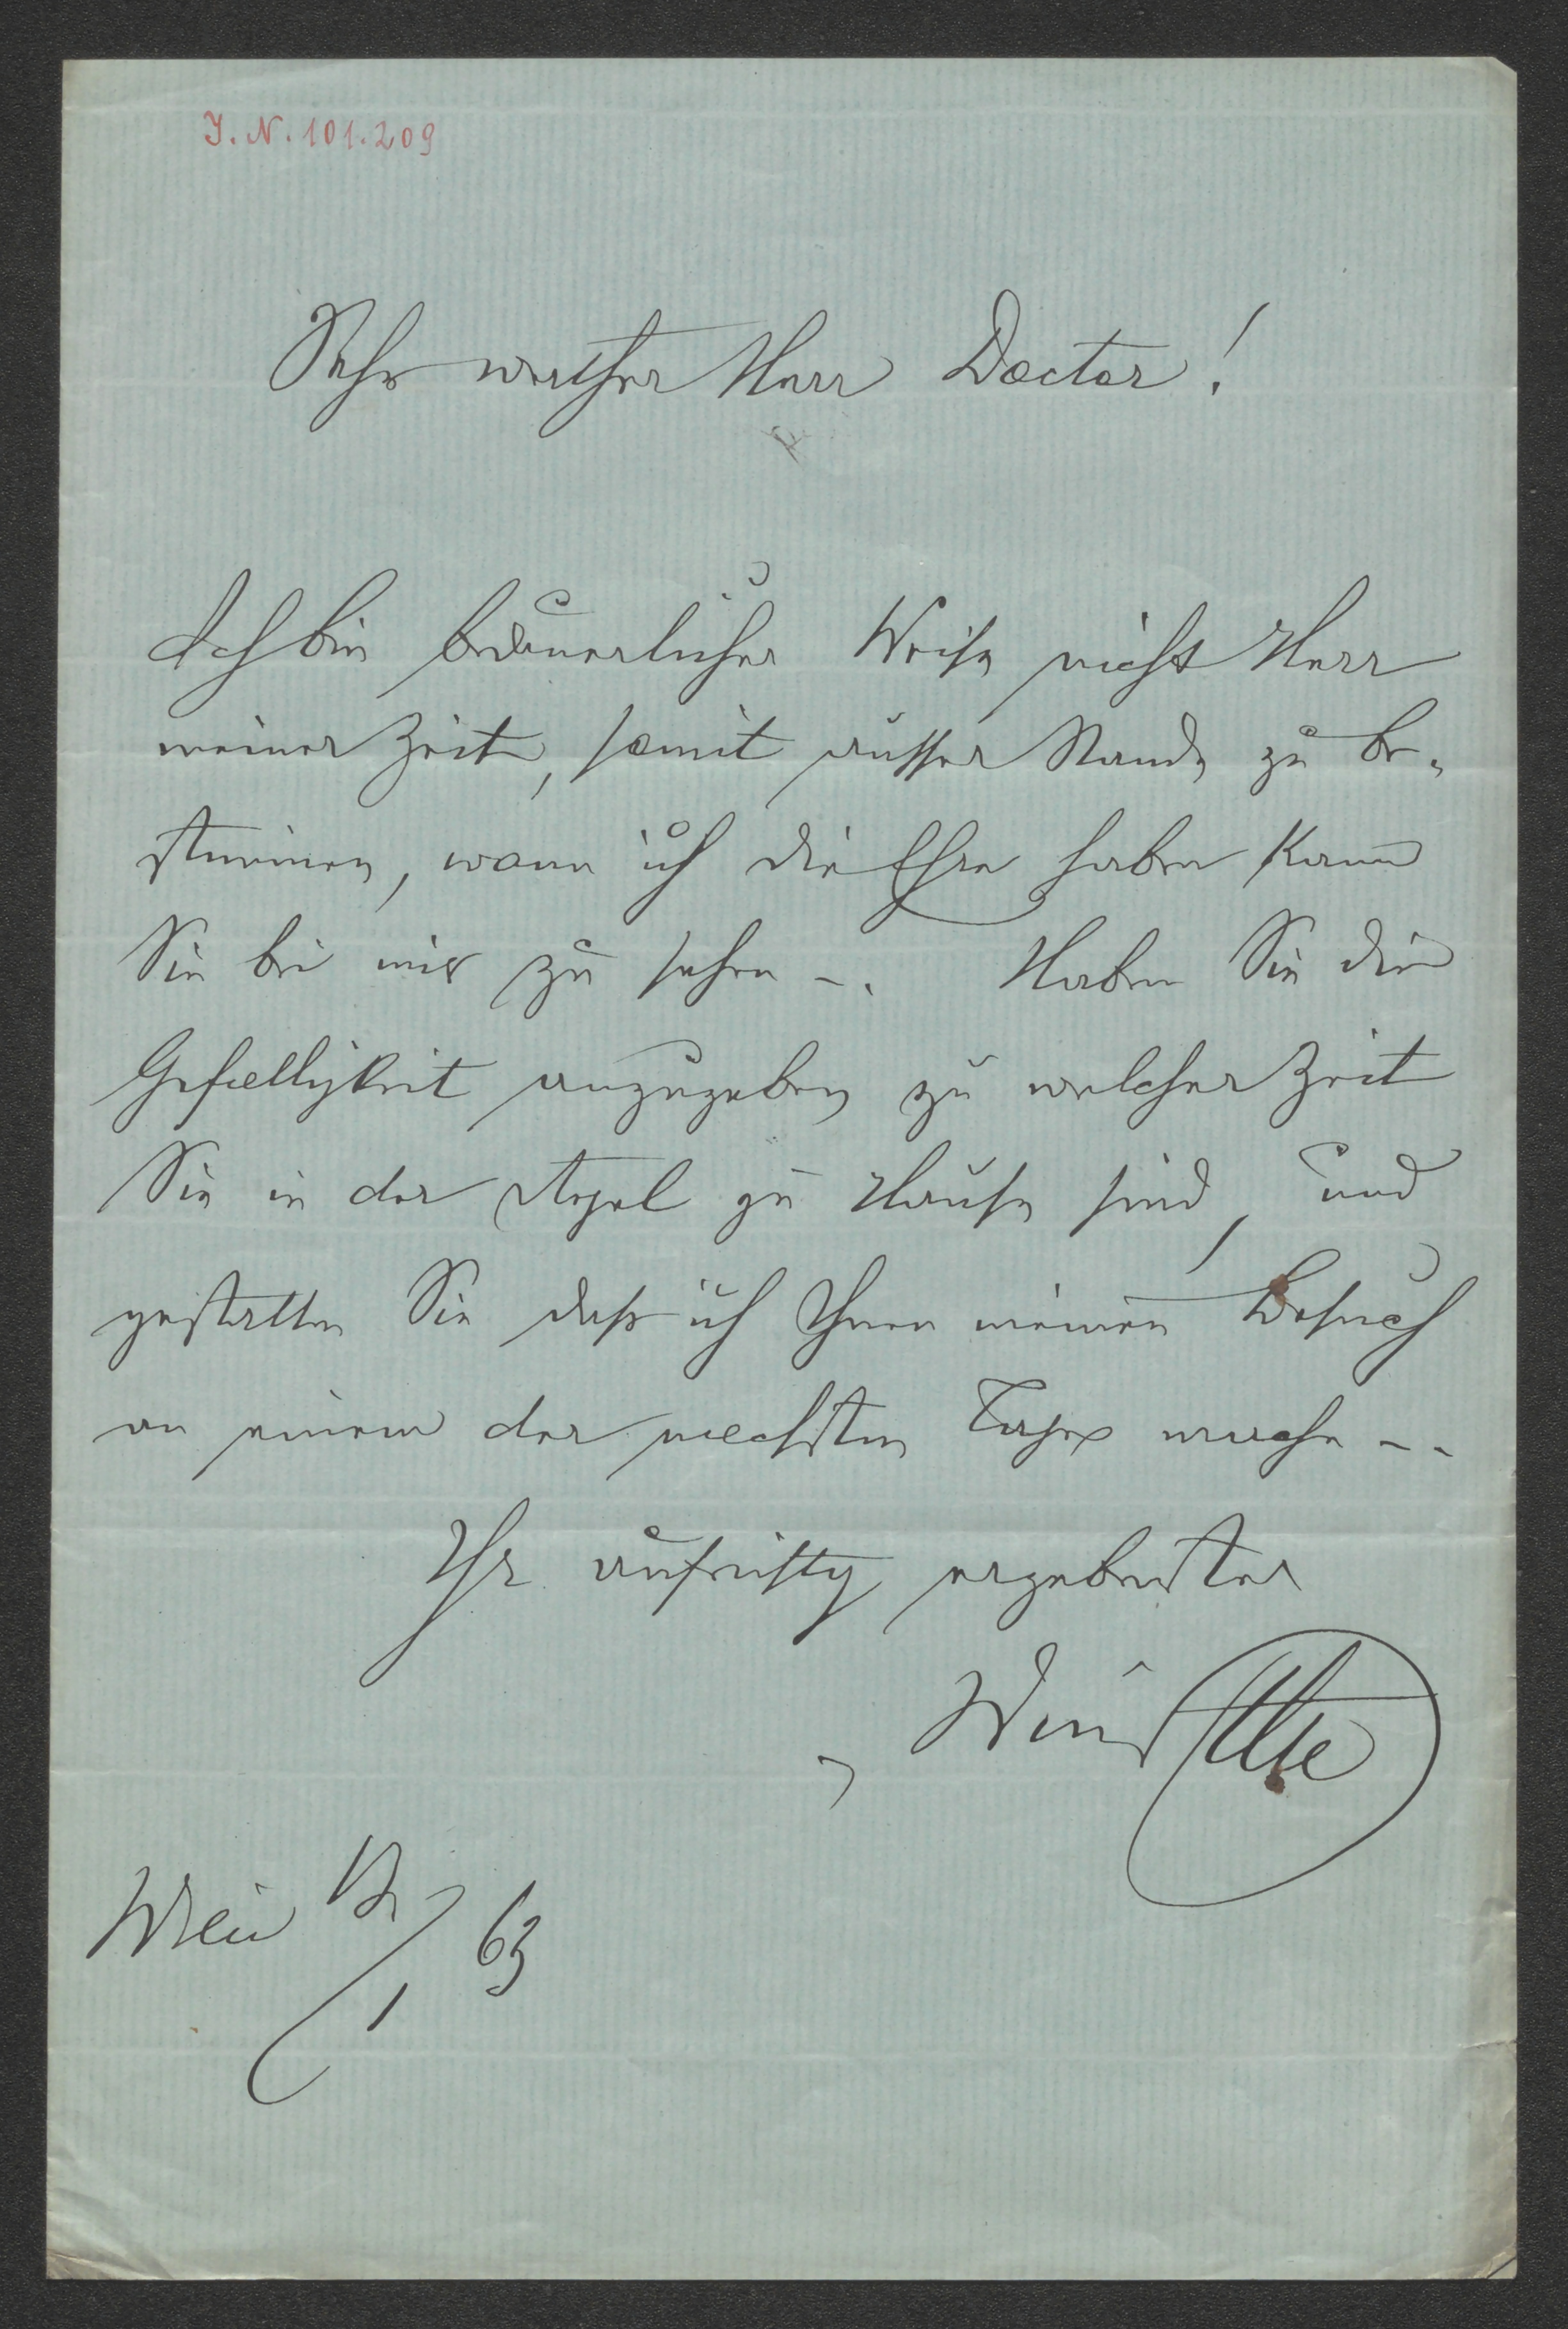 J. N. 101.209
Sehr werther Herr Doctor!
Ich bin bedauerlicher Weise nicht Herr
meiner Zeit, somit ausser Stande zu be-
stimmen, wann ich die Ehre haben kann
Sie bei mir zu sehen -. Haben Sie die
Gefaelligkeit anzugeben zu welcher Zeit
Sie in der Regel zu Hause sind, und
gestatten Sie daß ich Ihnen meinen Besuch
an einem der naechsten Tage mache -.
Ihr aufrichtig ergebenster
Wien 12/1 63